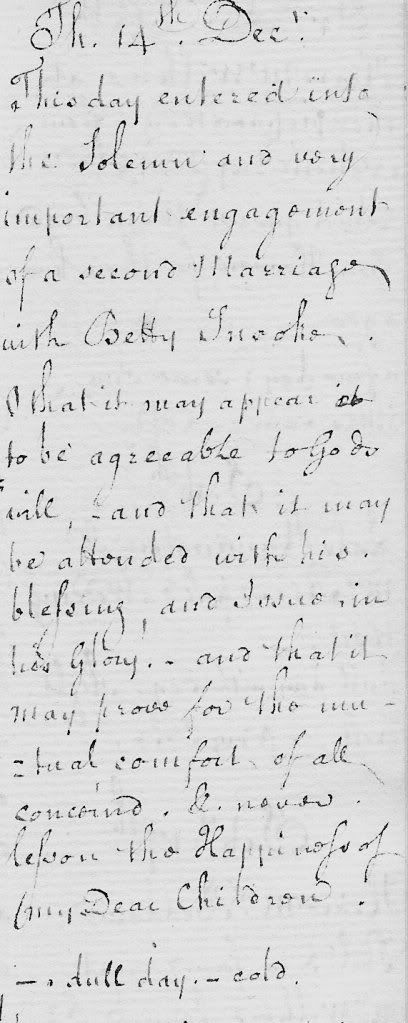 Th. 14th. Decr.
This day entered into
the Solemn and very
important engagement
of a second Marriage
with Betty Snooke.
O that it may appear
to be agreeable to Gods
will, - and that it may
be attended with his.
blessing, and Issue in
his Glory. - and that it
may prove for the mu-
=tual comfort of all
concernd. & never.
lesson the Happiness of
my Dear Children.
- . dull day. - cold.